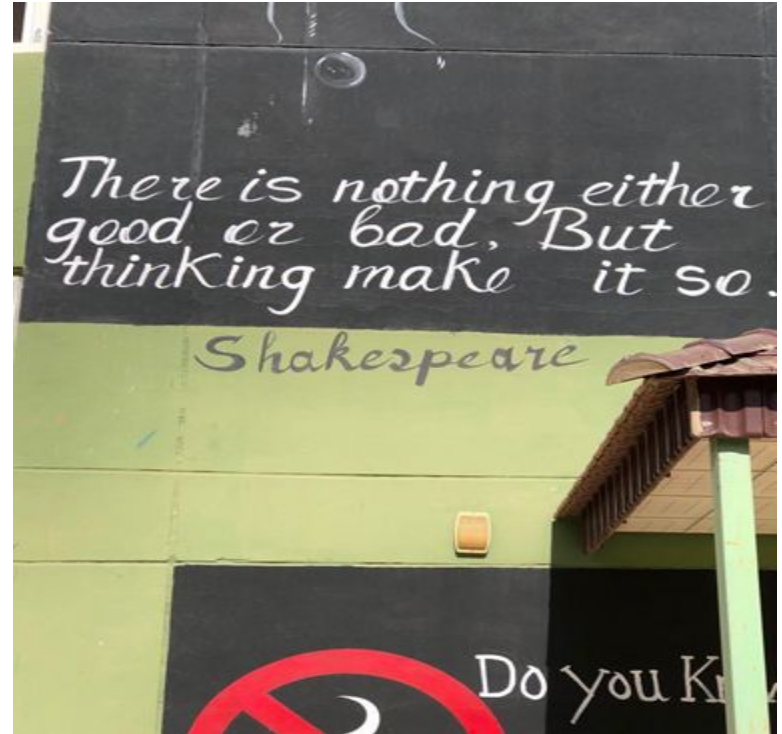 There is nothing either
good or bad, But
thinKing make it so.
Shakespeare
Do you